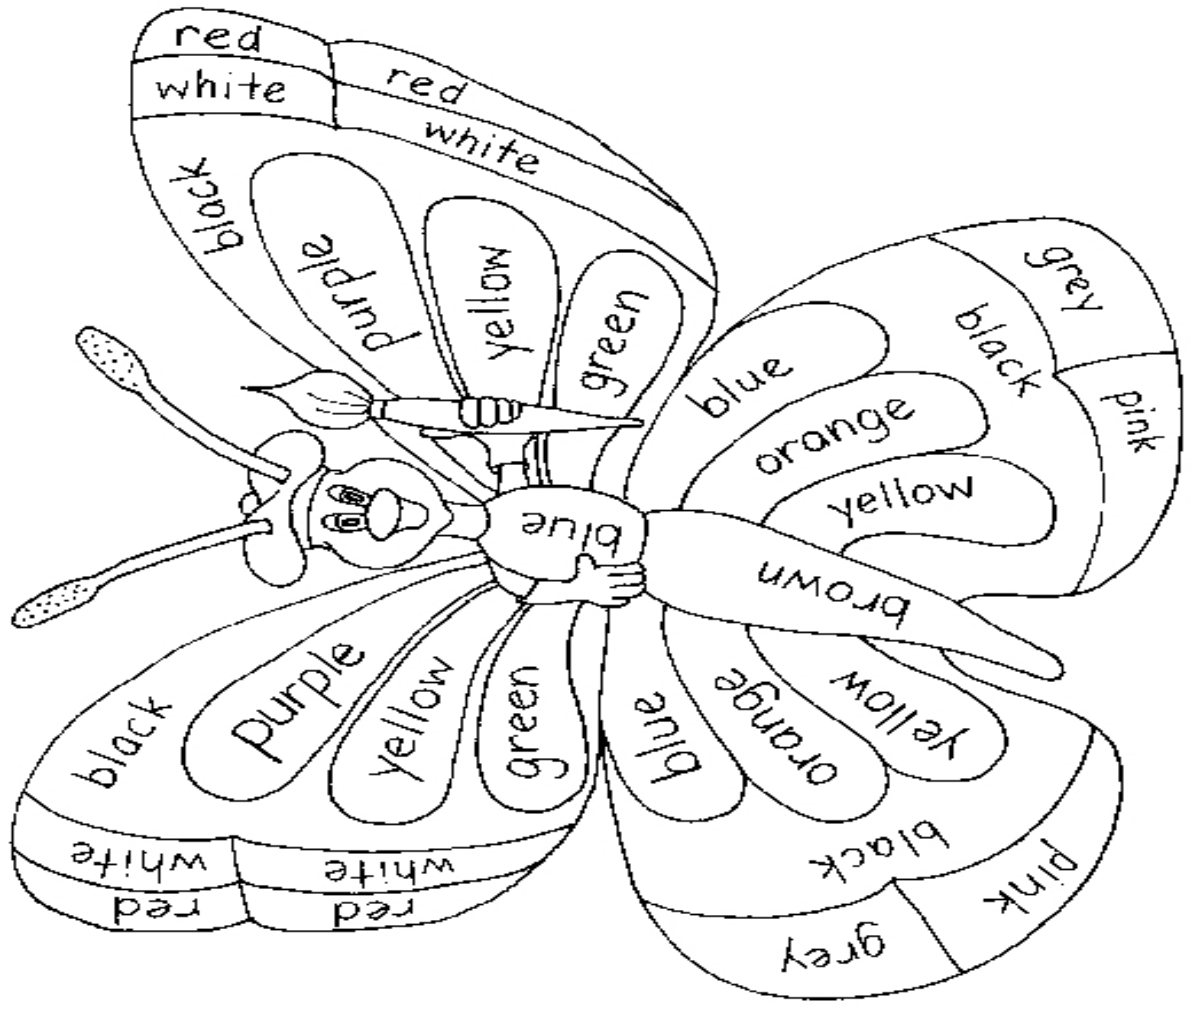 red
red
white
white
black
purple
yellow
green
grey
black
pink
blue
orange
yellow
blue
brown
purple
yellow
green
black
blue
orange
yellow
white
white
red
red
black
pink
grey